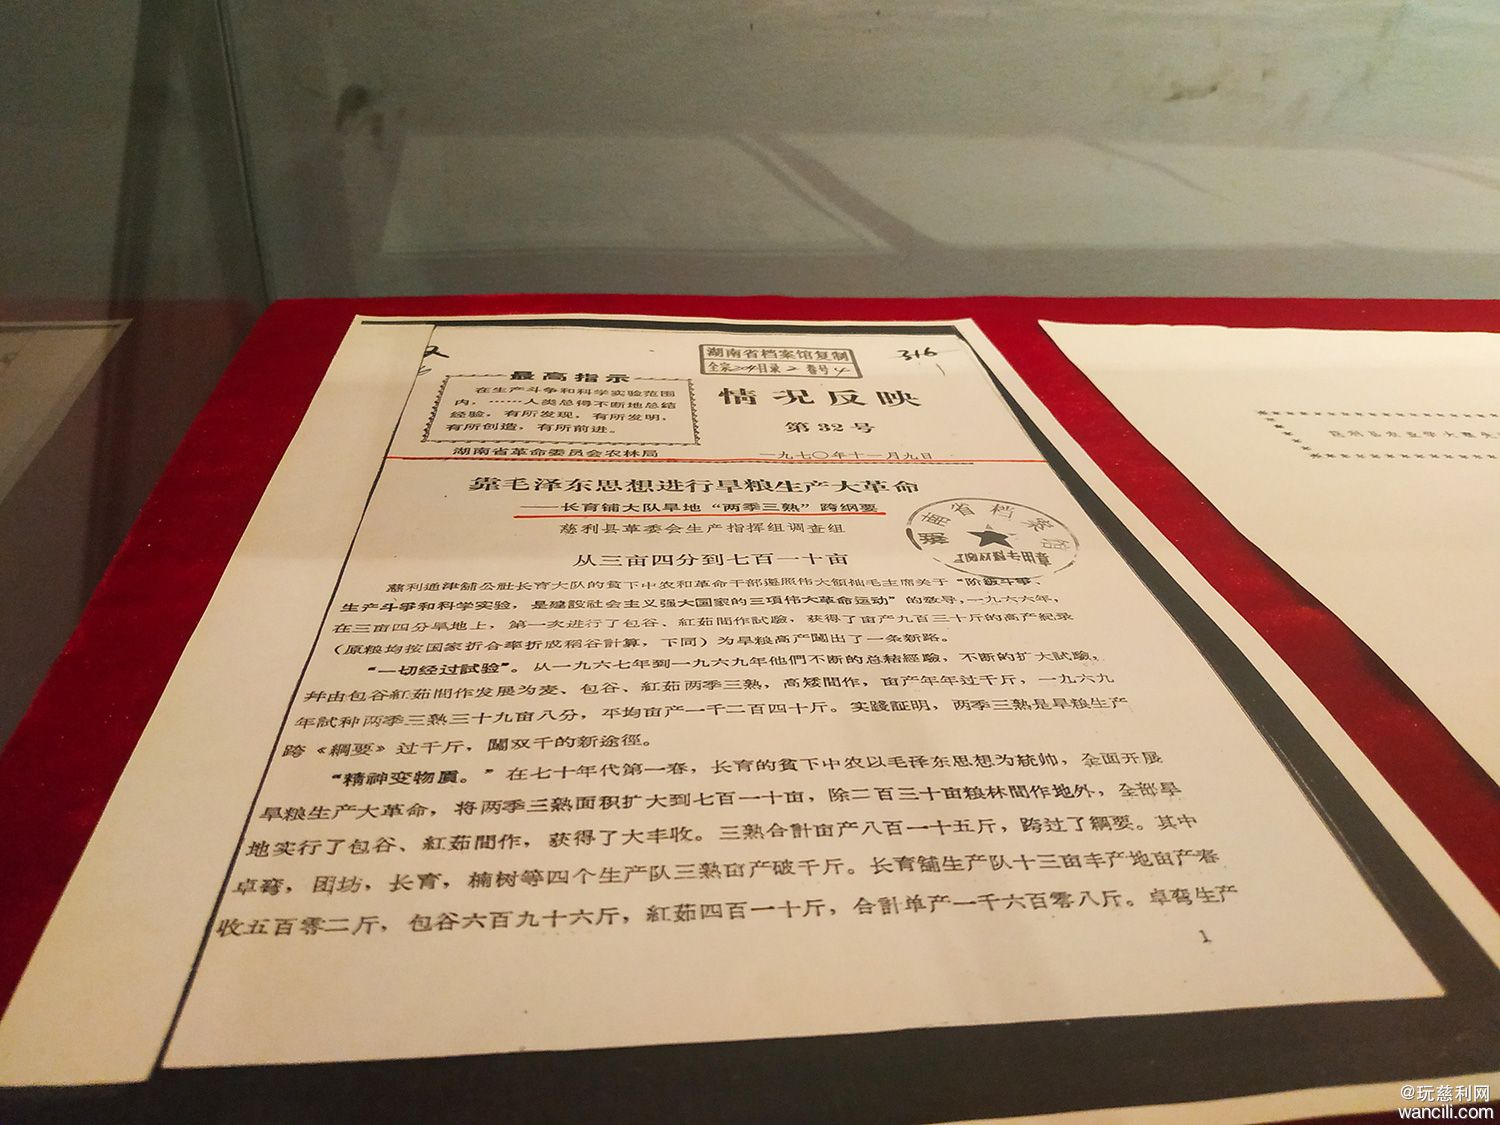 湖南省档案馆复制
全宗204目录2卷号4
316
最高指示
在生产斗争和科学实验范围
内，……人类总得不断地总结
经验，有所发现，有所发明，
有所创造，有所前进。
情况反映
第32号
湖南省革命委员会农林局
一九七〇年十一月九日
靠毛泽东思想进行旱粮生产大革命
——长育铺大队旱地“两季三熟”跨纲要
慈利县革委会生产指挥组调查组
湖南省档案馆
从三亩四分到七百一十亩
慈利通津舖公社长育大队的貧下中农和革命干部遵照伟大領袖毛主席关于“阶級斗爭、
生产斗爭和科学实验，是建設社会主义强大国家的三項伟大革命运动”的敎导，一九六六年，
在三亩四分旱地上，第一次进行了包谷、紅茹間作試驗，获得了亩产九百三十斤的高产紀录
（原粮均按国家折合率折成稻谷計算，下同）为旱粮高产闖出了一条新路。
“一切经过試验”。从一九六七年到一九六九年他們不断的总結經驗，不断的扩大試驗，
幷由包谷紅茹間作发展为麦、包谷、紅茹两季三熟，高矮間作，亩产年年过千斤，一九六九
年試种两季三熟三十九亩八分，平均亩产一千二百四十斤。实踐証明，两季三熟是旱粮生产
跨《綱要》过千斤，闖双千的新途徑。
“精神变物質。”在七十年代第一春，长育的貧下中农以毛泽东思想为統帅，全面开展
旱粮生产大革命，将两季三熟面积扩大到七百一十亩，除二百三十亩粮林間作地外，全部旱
地实行了包谷、紅茹間作，获得了大丰收。三熟合計亩产八百一十五斤，跨过了綱要。其中
卓弯，团坊，长育，楠树等四个生产队三熟亩产破千斤。长育舖生产队十三亩丰产地亩产春
收五百零二斤，包谷六百九十六斤，紅茹四百一十斤，合計单产一千六百零八斤。卓弯生产
1
@玩慈利网
wancili.com